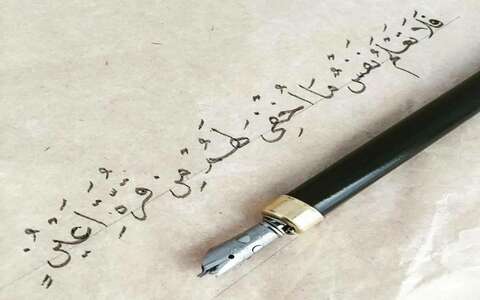 فَلَا تَعْلَمُ نَفْسٌ مَا أُخْفِيَ لَهُمْ مِنْ قُرَّةِ أَعْيُنٍ